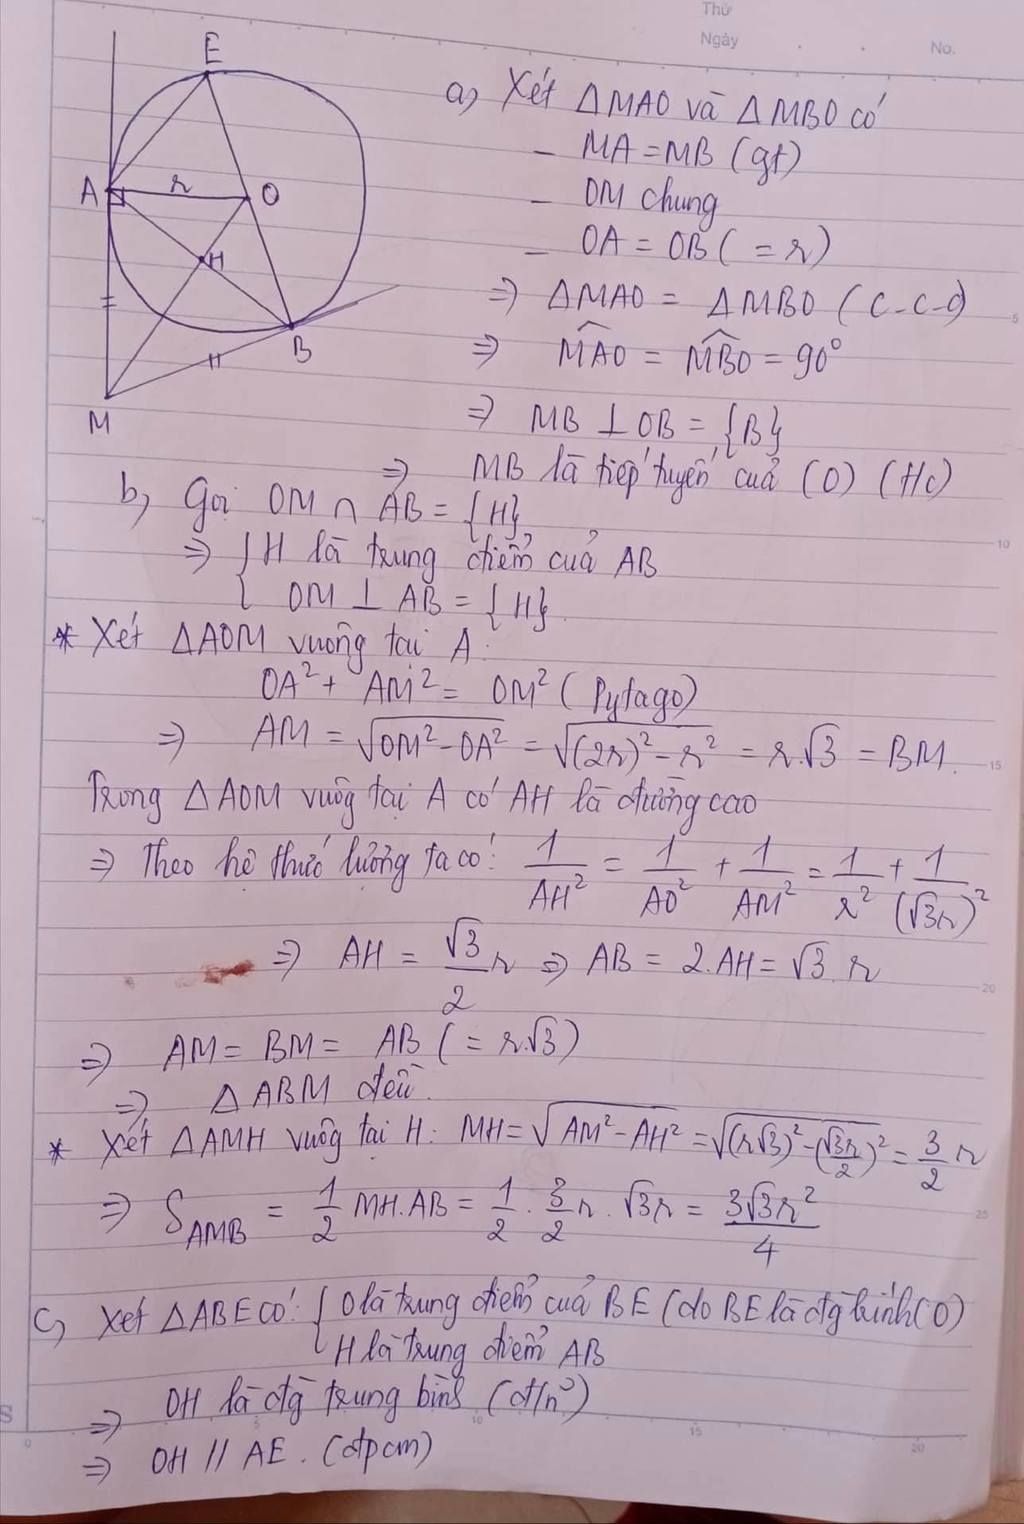 Thứ
Ngày
No.
E
A
r
O
H
B
M
a, Xét ΔMAO và ΔMBO có
- MA = MB (gt)
- OM chung
- OA = OB ( = r)
=> ΔMAO = ΔMBO (c-c-c)
=> \widehat{MAO} = \widehat{MBO} = 90°
=> MB ⊥ OB = {B}
=> MB là tiếp tuyến của (O) (Hc)
b, Gọi OM ∩ AB = {H}
=> { H là trung điểm của AB
OM ⊥ AB = {H}
* Xét ΔAOM vuông tại A:
OA² + AM² = OM² (Pytago)
=> AM = √(OM² - OA²) = √((2r)² - r²) = r.√3 = BM.
Trong ΔAOM vuôg tại A có AH là đường cao
=> Theo hệ thức lượng ta có: 1/AH² = 1/AO² + 1/AM² = 1/r² + 1/(√3r)²
=> AH = √3/2 r => AB = 2.AH = √3.r
=> AM = BM = AB ( = r.√3)
=> ΔABM đều.
* Xét ΔAMH vuôg tại H: MH = √(AM² - AH²) = √((r√3)² - (√3r/2)²) = 3/2 r
=> S_AMB = 1/2 MH.AB = 1/2 . 3/2 r . √3r = 3√3r²/4
c, Xét ΔABE có: { O là trung điểm của BE (do BE là đg kính (O)
H là trung điểm AB
=> OH là đg trung bình (đ/n)
=> OH // AE. (đpcm)
5
10
15
20
25
S
0
5
10
15
20